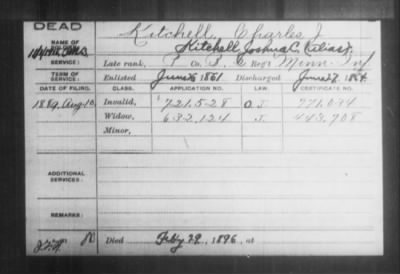 DEAD
NAME OF SOLDIER: Kitchell, Charles J.
Kitchell, Joshua C. (alias).
SERVICE: Late rank, P Co. B, 2 Reg't Minn. Inf
TERM OF SERVICE: Enlisted June 26 1861 Discharged June 27, 1864
DATE OF FILING. CLASS. APPLICATION NO. LAW. CERTIFICATE NO.
1889, Aug. 10, Invalid, 721,528 O.J. 771,094
Widow, 632,124 J. 443,708
Minor,
ADDITIONAL SERVICES:
REMARKS:
Died Feby 29, 1896, at